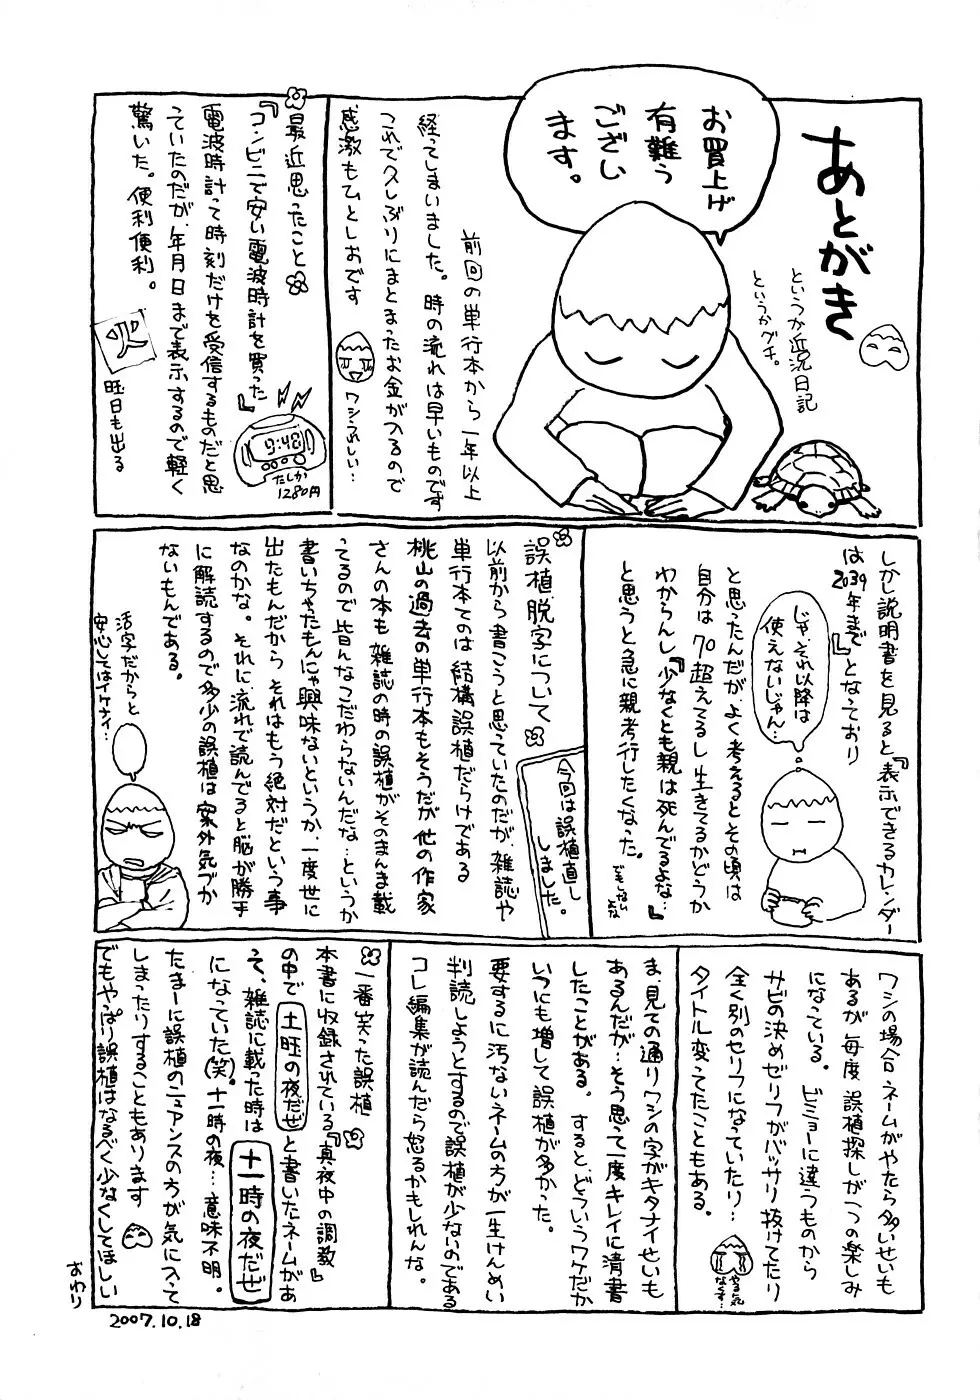 あとがき
というか近況日記
というかグチ。
お買上げ
有難う
ござい
ます。
前回の単行本から一年以上
経ってしまいました。時の流れは早いものです
これで久しぶりにまとまったお金が入るので
感激もひとしおです
ワシうれしい…
最近思ったこと
『コンビニで安い電波時計を買った』
電波時計って時刻だけを受信するものだと思
っていたのだが、年月日まで表示するので軽く
驚いた。便利便利。
9:48
たしか
1280円
火
曜日も出る
しかし説明書を見ると『表示できるカレンダー
は2039年まで』となっており
じゃ、それ以降は
使えないじゃん…
と思ったんだが、よく考えるとその頃は
自分は70超えてるし生きてるかどうか
わからんし『少なくとも親は死んでるよな…』
と思うと急に親孝行したくなった。
誤植脱字について
今回は誤植直し
しました。
以前から書こうと思っていたのだが、雑誌や
単行本てのは結構誤植だらけである
桃山の過去の単行本もそうだが他の作家
さんの本も雑誌の時の誤植がそのまんま載
ってるので皆んなこだわらないんだな…というか
書いちゃったもんにゃ興味ないというか、一度世に
出たもんだからそれはもう絶対だという事
なのかな。それに流れで読んでると脳が勝手
に解読するので多少の誤植は案外気づか
ないもんである。
活字だからと
安心してはイケナイ…
ワシの場合ネームがやたら多いせいも
あるが毎度誤植探しが一つの楽しみ
になっている。ビミョーに違うものから
サビの決めゼリフがバッサリ抜けてたり
全く別のセリフになっていたり…
タイトル変ってたこともある。
やる気
なくす…
ま、見ての通りワシの字がキタナイせいも
あるんだが…そう思って一度キレイに清書
したことがある。すると、どういうワケか
いつにも増して誤植が多かった。
要するに汚ないネームの方が一生けんめい
判読しようとするので誤植が少ないのである
コレ編集が読んだら怒るかもしれんな。
一番笑った誤植
本書に収録されている『真夜中の調教』
の中で土曜の夜だぜと書いたネームがあ
って、雑誌に載った時は十一時の夜だぜ
になっていた(笑)。十一時の夜…意味不明。
たまーに誤植のニュアンスの方が気に入って
しまったりすることもあります
でもやっぱり誤植はなるべく少なくしてほしい
おわり
2007.10.18